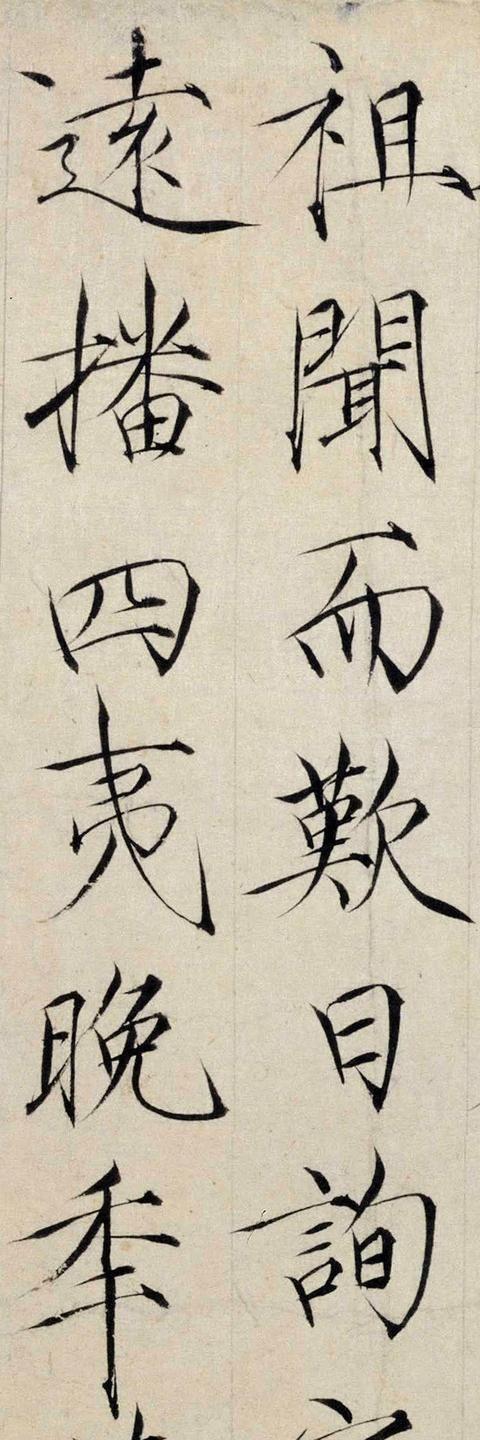 祖聞而歎曰詢
遠播四夷晚秊